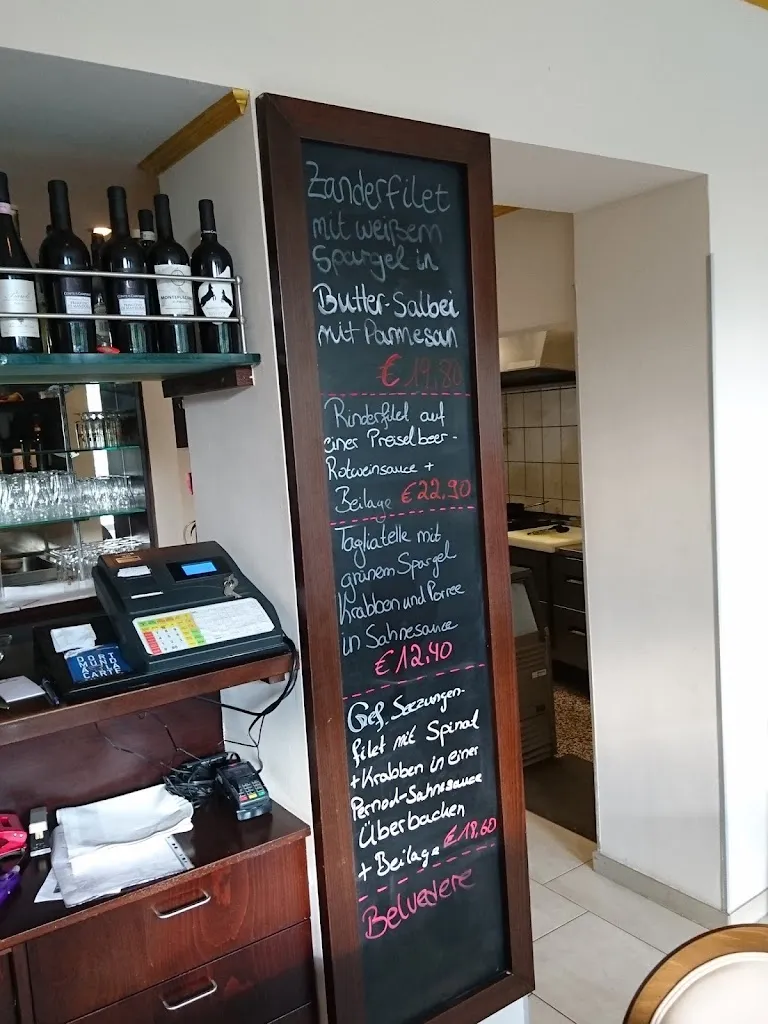 Zanderfilet
mit weißem
Spargel in
Butter-Salbei
mit Parmesan
€ 19.80
Rinderfilet auf
einer Preiselbeer-
Rotweinsauce +
Beilage €22,90
Tagliatelle mit
grünem Spargel
Krabben und Porree
in Sahnesauce
€12,40
Gef. Seezungen-
filet mit Spinat
+Krabben in einer
Pernod-Sahnesauce
Überbacken
+ Beilage €18,60
Belvedere
DORT
MUND À LA
CARTE